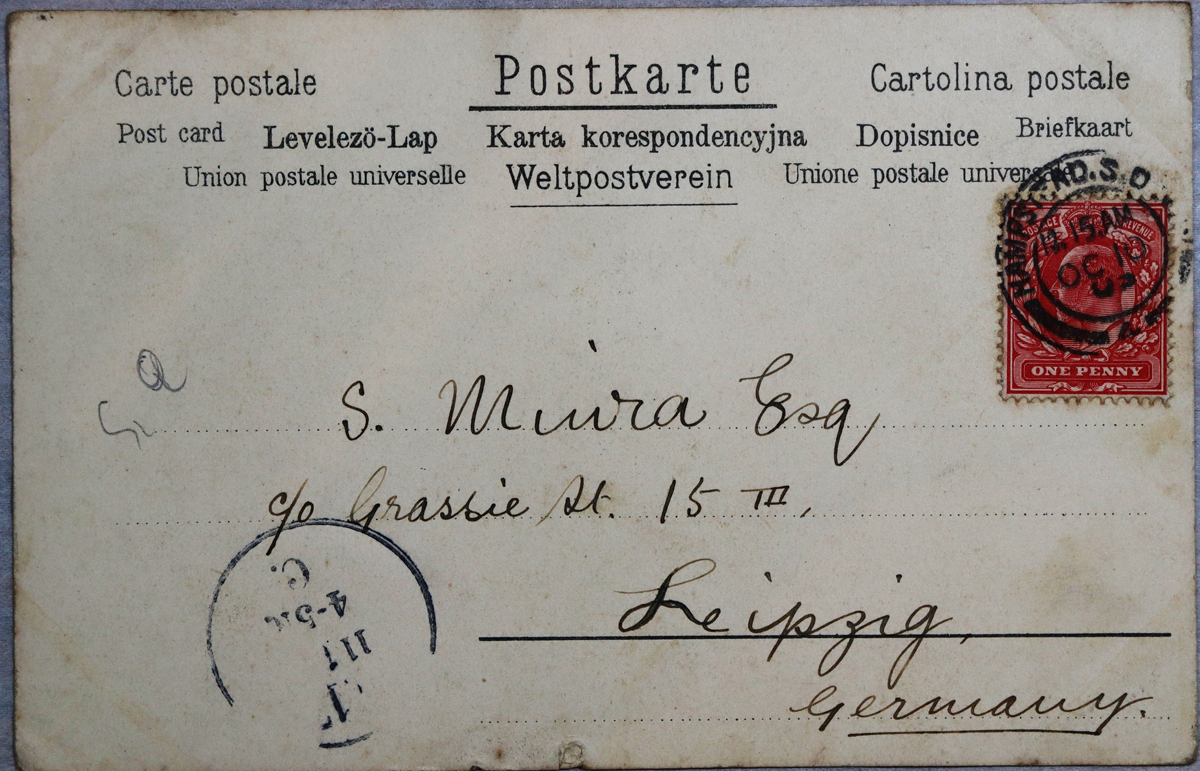 Carte postale Postkarte Cartolina postale
Post card Levelezö-Lap Karta korespondencyjna Dopisnice Briefkaart
Union postale universelle Weltpostverein Unione postale universale
HAMPSTEAD.S.O.
12.15 AM
OC 10
03
POSTAGE REVENUE
ONE PENNY
S. Miura Esq
c/o Grassie St. 15 III,
Leipzig,
Germany.
C.
4-5